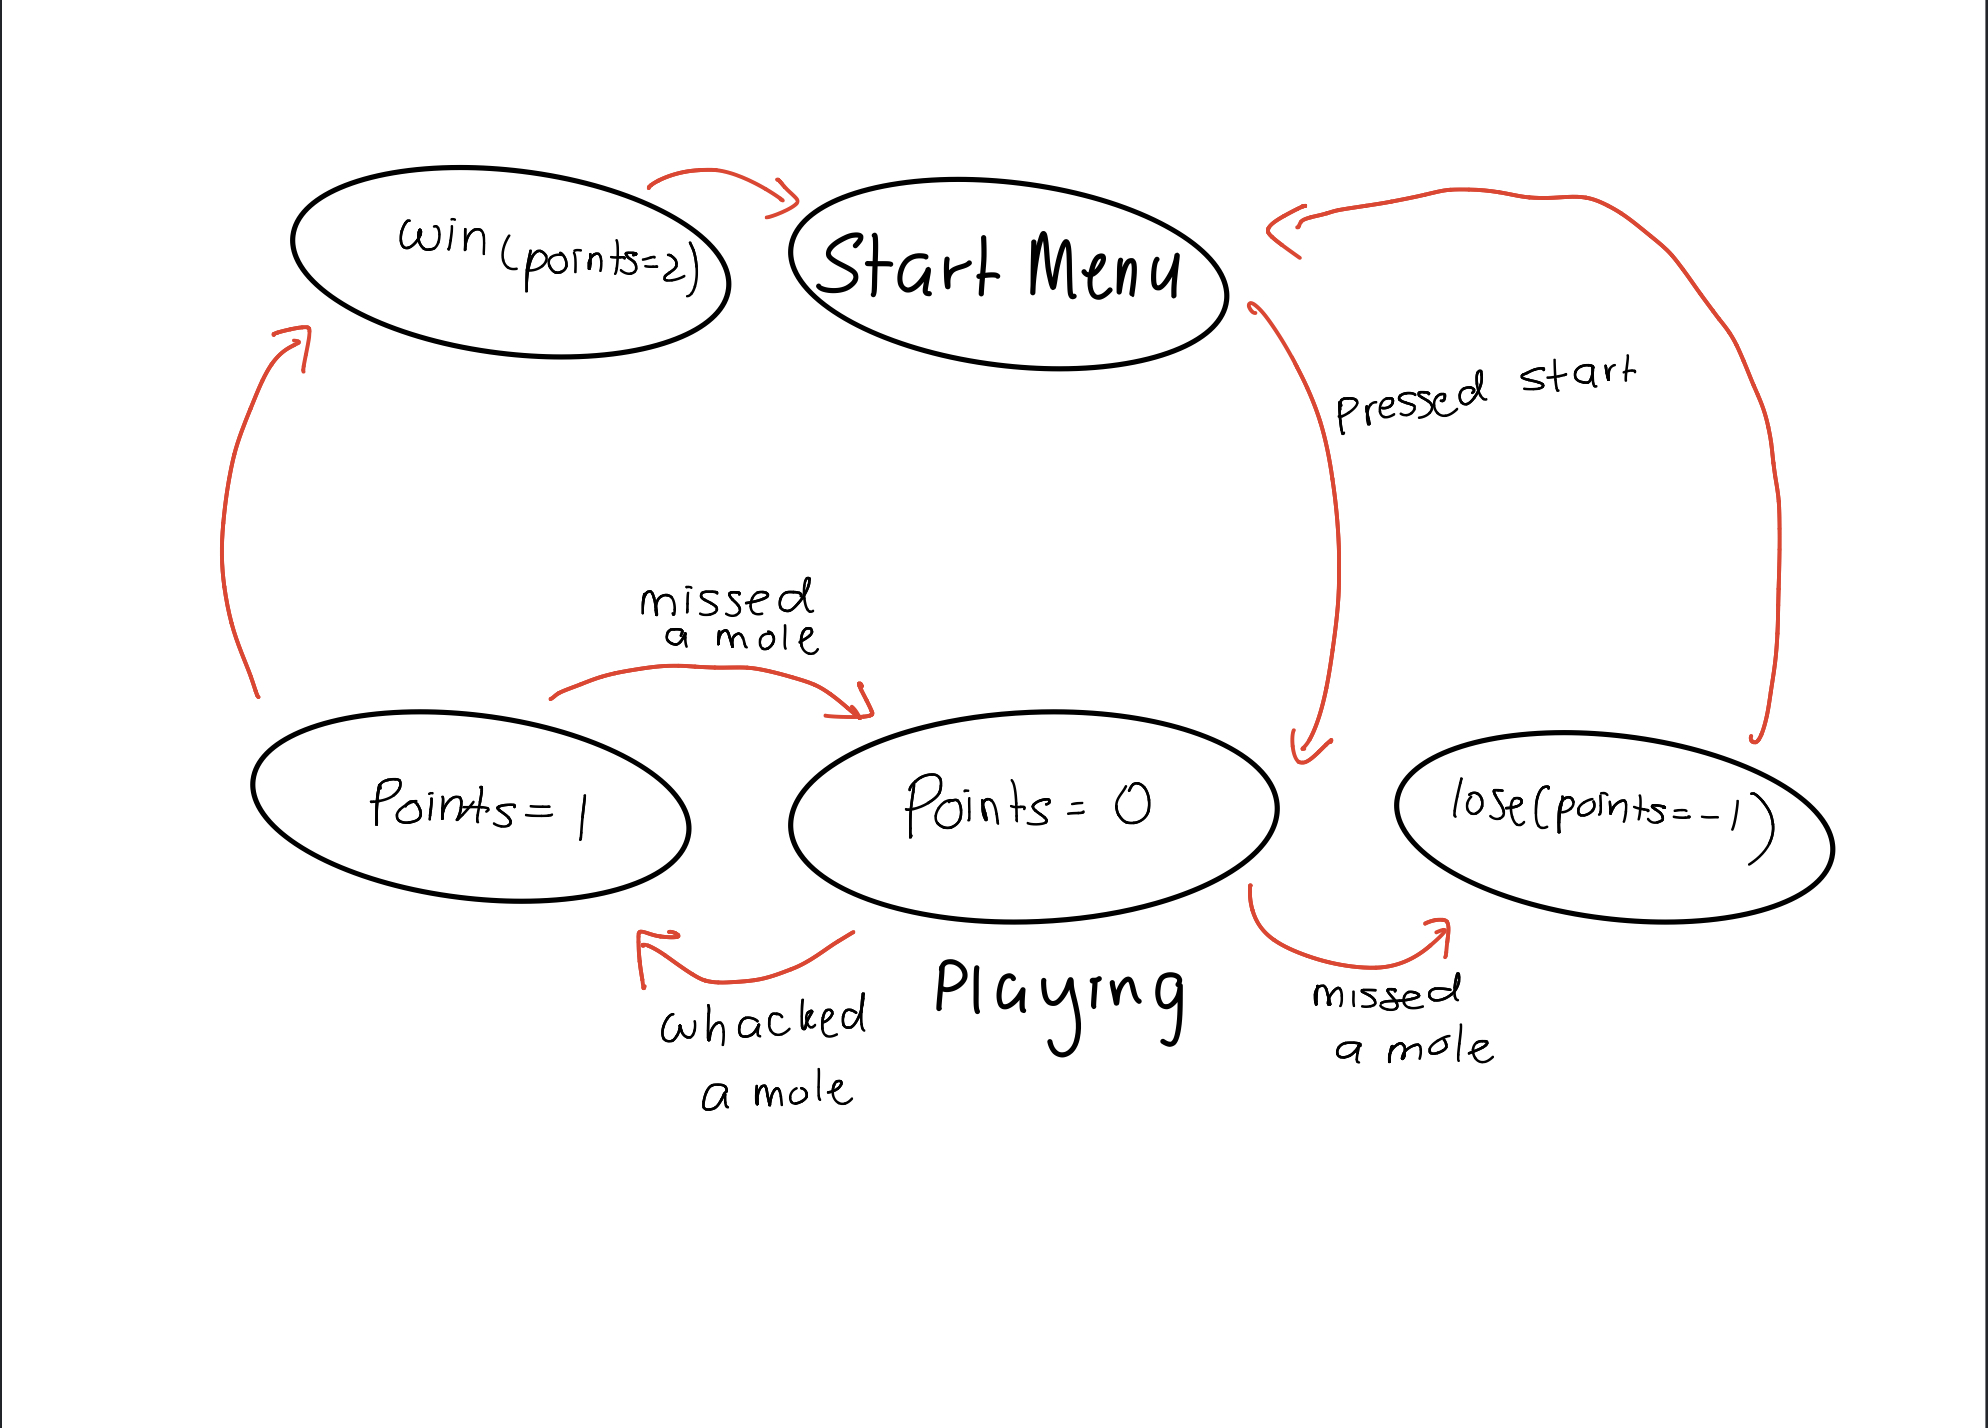 win (points=2)
Start Menu
Pressed start
missed
a mole
Points = 1
Points = 0
lose(points=-1)
Playing
whacked
a mole
missed
a mole